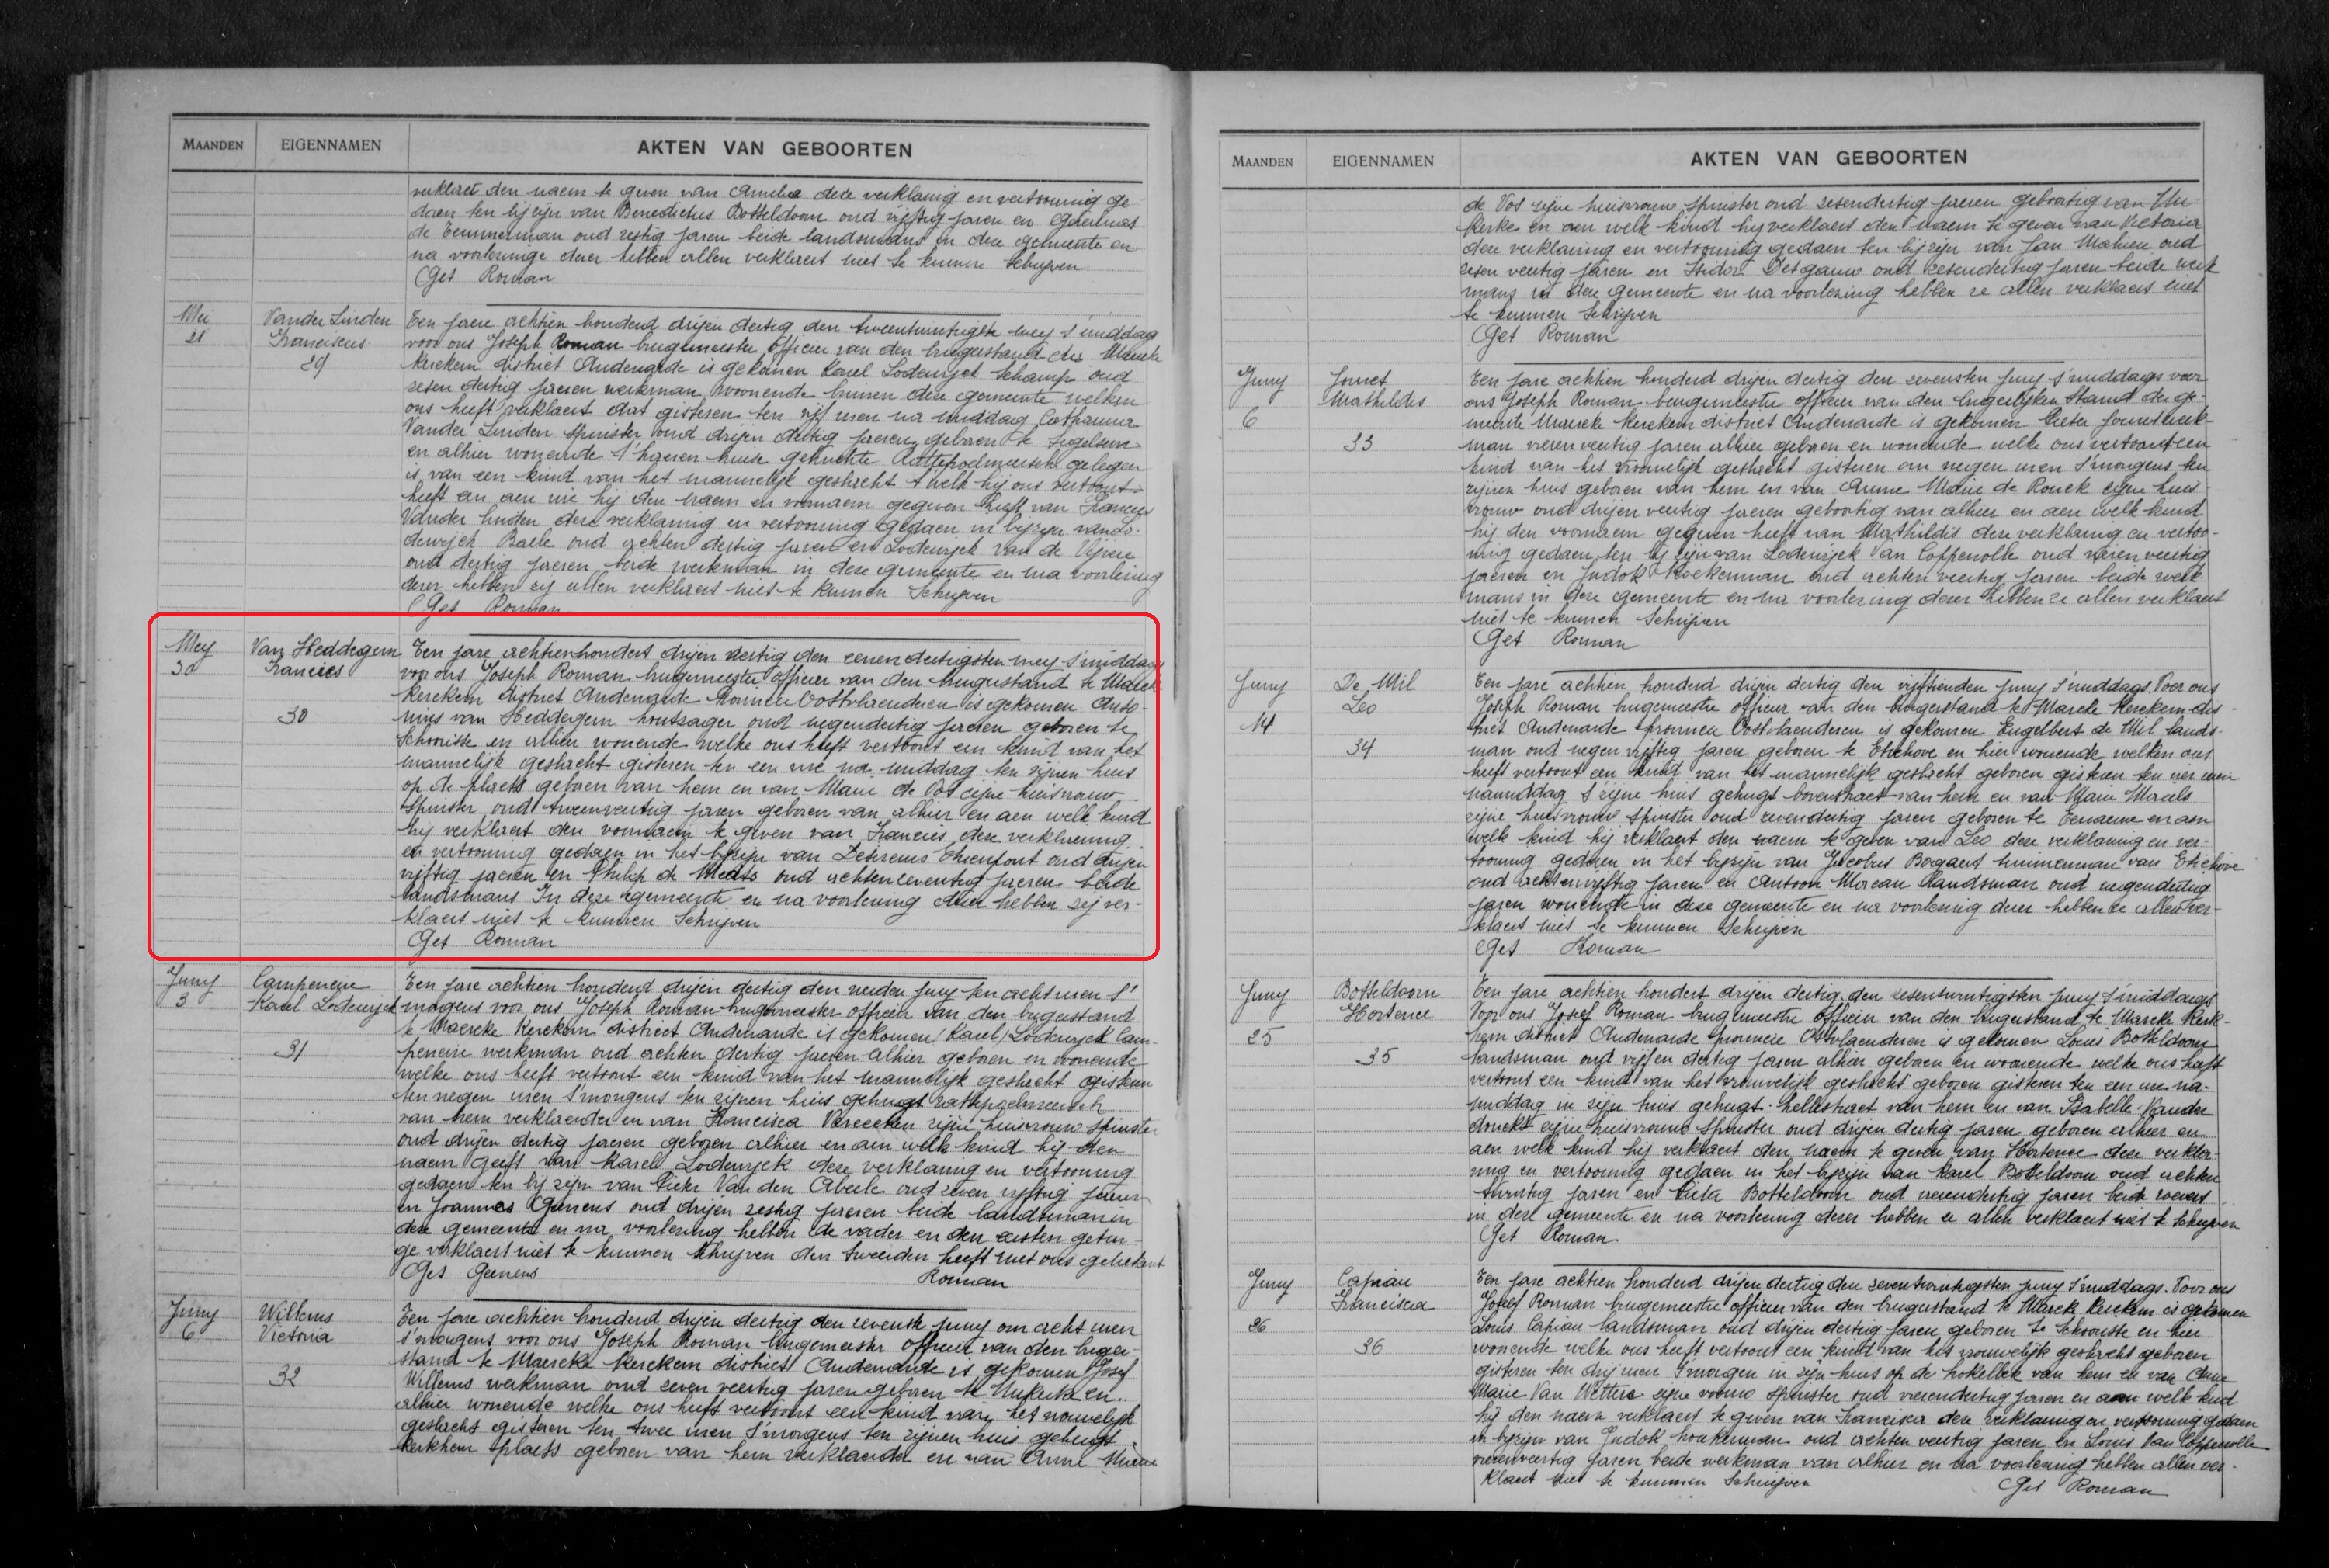 MAANDEN EIGENNAMEN AKTEN VAN GEBOORTEN
verklaert den naem te geven van Amelia deze verklaring en vertooning ge
daen ten bijzijn van Benedictus Botteldoorn oud vijftig jaren en
de Temmerman oud zestig jaren beide landsmans in deze gemeente en
na voorlezinge dezer hebben allen verklaert niet te kunnen schrijven
(Get Roman
Mei Vander Linden Een jaere achtien honderd drijen dertig den tweentwintigste mey s'middag
21 Franciscus voor ons Joseph Roman burgemeester officier van den burgerstand der Maercke
29 Kerckem district Audenaerde is gekomen Karel Lodewyck Schamp oud
zesen dertig jaeren werkman woonende binnen deze gemeente welken
ons heeft verklaert dat gisteren ten vijf uren na middag Catharina
Vander Linden spinster oud drijen dertig jaeren geboren te Segelsem
en alhier wonende s'haeren huize gehuchte Rattepoelmeersch gelegen
is van een kind van het mannelijk geslacht t'welk hij ons vertoont
heeft en aen wie hij den naem en voornaem gegeven heeft van Francis
Vander Linden deze verklaring en vertooning gedaen in bijzijn van Lo-
dewijck Baele oud achten dertig jaren en Lodewyck van de Vijvere
oud dertig jaeren beide werkman in deze gemeente en na voorlezing
dezer hebben zij allen verklaert niet te kunnen schrijven
(Get Roman
Mey Van Heddegem Een jare achtienhondert drijen dertig den eenendertigsten mey s'middags
30 Francies voor ons Joseph Roman burgemeester officier van den burgerstand te Maercke
Kerckem district Audenaarde Provincie Oostvlaenderen is gekomen Anto-
30 nius van Heddegem houtzager oud negendertig jaeren geboren te
Schoorisse en alhier wonende welke ons heeft vertoont een kind van het
mannelijk geslacht gisteren ten een ure na middag ten zijnen huis
op de plaets geboren van hem en van Marie de Vos zijne huisvrouw
spinster oud tweenveertig jaren geboren van alhier en aen welk kind
hij verklaert den voornaem te geven van Francies deze verklaering
en vertooning gedaen in het bijzijn van Desireus Ehrenfont oud drijen
vijftig jaeren en Philip de Meets oud achtenzeventig jaeren beide
landsmans In deze gemeente en na voorlezing dezer hebben zij ver-
klaert niet te kunnen schrijven
Get Roman
Juny Campeneire Een jare achtien honderd drijen dertig den vierden juny ten acht uren s'
3 Karel Lodewyck morgens voor ons Joseph Roman burgemeester officier van den burgerstand
te Maercke Kerckem district Audenaarde is gekomen Karel Lodewyck Cam-
31 peneire werkman oud achten dertig jaeren alhier geboren en wonende
welke ons heeft vertoont een kind van het mannelijk geslacht gisteren
ten negen uren s'morgens ten zijnen huis gehugt rattepoelmeersch
van hem verklaerder en van Francisca Verecken zijne huisvrouw spinster
oud drijen dertig jaeren geboren alhier en aen welk kind hij den
naem geeft van Karel Lodewyck deze verklaring en vertooning
gedaen ten bij zijn van Pieter Van den Abeele oud zeven vijftig jaeren
en Joannes Geenens oud drijen zestig jaeren beide landsman in
deze gemeente en na voorlezing hebben de vader en den eersten getui-
ge verklaert niet te kunnen schrijven den tweeden heeft met ons geteekent
Get Geenens Roman
Juny Willems Een jare achtien honderd drijen dertig den zevenste juny om acht uren
6 Victoria s'morgens voor ons Joseph Roman burgemeester officier van den burger-
stand te Maercke Kerckem district Audenaarde is gekomen Josef
32 Willems werkman oud zeven veertig jaren geboren te Nukerke en
alhier wonende welke ons heeft vertoont een kind van het vrouwelijk
geslacht gisteren ten twee uren s'morgens ten zijnen huis gehugt
Kerkhem plaets geboren van hem verklaerder en van Anne Marie
MAANDEN EIGENNAMEN AKTEN VAN GEBOORTEN
de Vos zijne huisvrouw spinster oud zesendertig jaeren geboortig van Nu
kerke en aen welk kind hij verklaert den naem te geven van Victoria
deze verklaring en vertooning gedaen ten bijzijn van Jan Mahieu oud
zesen veertig jaren en Isidor Desgauw oud zesendertig jaren beide werk
mans in deze gemeente en na voorlezing hebben ze allen verklaert niet
te kunnen schrijven
(Get Roman
Juny Jouret Een jare achtien honderd drijen dertig den zevensten juny s'middags voor
Mathildis ons Joseph Roman burgemeester officier van den burgerlijken stand der ge-
6 meente Maercke Kerckem district Audenaarde is gekomen Pieter Jouret werk-
33 man vieren veertig jaren alhier geboren en wonende welke ons vertoont een
kind van het vrouwelijk geslacht gisteren om negen uren s'morgens ten
zijnen huis geboren van hem en van Anne Marie de Rouck zijne huis-
vrouw oud drijen veertig jaeren geboortig van alhier en aen welk kind
hij den voornaem gegeven heeft van Mathildis deze verklaring en vertoo-
ning gedaen ten bij zijn van Lodewijck Van Coppenolle oud vieren veertig
jaeren en Judok Hoekerman oud achten veertig jaren beide werk
mans in deze gemeente en na voorlezing dezer hebben ze allen verklaert
niet te kunnen schrijven
Get Roman
Juny De Mil Een jare achtien honderd drijen dertig den vijftienden juny s'middags. Voor ons
Leo Joseph Roman burgemeester officier van den burgerstand te Maercke Kerckem dis-
14 trict Audenaarde provincie Oostvlaenderen is gekomen Engelbert de Mil lands-
34 man oud negen vijftig jaren geboren te Etichove en hier wonende welken ons
heeft vertoont een kind van het mannelijk geslacht geboren gisteren ten vier uren
namiddag s'zijne huis gehugt bovenstraet van hem en van Marie Maels
zijne huisvrouw spinster oud zevendertig jaren geboren te Eenaeme en aen
welk kind hij verklaert den naem te geven van Leo deze verklaring en ver-
tooning gedaen in het bijzijn van Jacobus Bogaert timmerman van Etichove
oud achtenvijftig jaren en Antoon Moreau landsman oud negendertig
jaren wonende in deze gemeente en na voorlezing dezer hebben ze allen ver-
klaert niet te kunnen schrijven
(Get Roman
Juny Botteldoorn Een jare achtien hondert drijen dertig den zesentwintigsten juny s'middags
Hortence Voor ons Josef Roman burgemeester officier van den burgerstand te Maercke Kerk-
25 hem district Audenaarde provincie Ostvlaenderen is gekomen Louis Botteldoorn
35 landsman oud vijfen dertig jaren alhier geboren en woonende welke ons heeft
vertoont een kind van het vrouwelijk geslacht geboren gisteren ten een ure na-
middag in zijn huis gehugt hellestraet van hem en van Isabelle Vander
donckt zijne huisvrouwe spinster oud drijen dertig jaren geboren alhier en
aen welk kind hij verklaert den naem te geven van Hortence deze verkla-
ring en vertooning gedaen in het bijzijn van Karel Botteldoorn oud achten
twintig jaren en Botteldoorn oud vierendertig jaren beide wevers
in deze gemeente en na voorlezing dezer hebben ze allen verklaert niet te schrijven
Get Roman
Juny Capiau Een jare achtien honderd drijen dertig den zeventwintigsten juny s'middags. Voor ons
Francisca Josef Roman burgemeester officier van den burgerstand te Maerck Kerckem is gekomen
26 Louis Capiau landsman oud drijen dertig jaren geboren te Schoorisse en hier
36 wonende welke ons heeft vertoont een kind van het vrouwelijk geslacht geboren
gisteren ten drij uren s'morgen in zijn huis op de hokelbek van hem en van Anne
Marie Van Wetter zijne vrouw spinster oud vierendertig jaren en aen welk kind
hij den naem verklaert te geven van Francisca deze verklaring en vertooning gedaen
in bijzijn van Judok houkerman oud achten veertig jaren en Louis Van Coppenolle
vierenveertig jaren beide werkman van alhier en na voorlezing hebben allen ver-
klaert niet te kunnen schrijven Get Roman